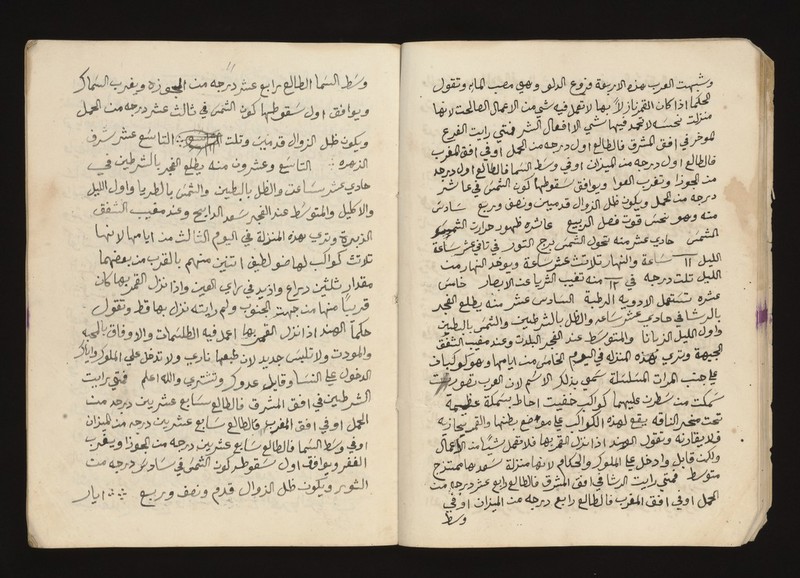 وشبهت العرب هذه الاربعة فروع الدلو وهو مصب الماء وتقول
الحكما اذا كان القمر نازلاً بها لا تعمل فيه شي من الاعمال الصالحة لانها
منزلة نحسه لا تحمد فيها شي الا افعال الشر فمتي رايت الفرع
الموخر في افق المشرق فالطالع اول درجه من الحمل او في افق المغرب
فالطالع اول درجه من الميزان او في وسط السما فالطالع اول درجه
من الجوزا وتغرب العوا ويوافق سقوطها كون الشمس في عاشر
درجه من الحمل ويكون ظل الزوال قدمين ونصف وربع سادس
منه وهو نحس قوت فصل الربيع عاشره ظهور حرارت الشمس
الشمس حادي عشر منه تحول الشمس برج الثور في تاني عشر ساعة
الليل ١١ ساعة والنهار تلاتة عشر ساعة ويوخد النهار من
الليل تلت درجه في ١٢ منه تغيب الثريا عن الابصار خامس
عشره تستعمل الادويه الرطبة السادس عشر منه يطلع الفجر
بالرشا في حادي عشر ساعه والظل بالشرطين والشمس بالبطين
واول الليل الزبانا والمتوسط عند الفجر البلدت وعند مغيب الشفق
الجبهة وتري هذه المنزله في اليوم الخامس من ايامها وهو كوكب
علي جنب المرات المسلسلة سمي بذكر الاسم لان العرب تصورت
سمكت من سطرين عليهما كواكب خفيت احاط بسمكة عظيمة
تحت نحر الناقه يقع لهذه الكواكب علي موضع بطنها والقمر يحازيه
فلا يقارنه وتقول الهند اذا نزل القمر بها فلا تعمل شيا من الاعمال
والكن قابل وادخل علي الملوك والحكام لانها منزلة سعد بها ممتزج
متوسط فمتي رايت الرشا في افق المشرق فالطالع رابع عشر درجه من
الحمل او في افق المغرب فالطالع رابع درجه من الميزان او في
وسط
وسط السما الطالع رابع عشر درجه من الجوزه ويغرب السماك
ويوافق اول سقوطها كون الشمس في ثالث عشر درجه من الحمل
ويكون ظل الزوال قدمين وتلت التاسع عشر شرف
الزهره التاسع وعشرون منه يطلع الفجر بالشرطين في
حادي عشر ساعة والظل بالبطين والشمس بالطريا واول الليل
والاكليل والمتوسط عند الفجر سعد الدابح وعند مغيب الشفق
الزبرة وتري هذه المنزلة في اليوم الثالث من ايامها لانها
تلاتت كواكب لها ضو لطيف اتنين منهم بالقرب من بعضهما
مقدار ثلثين دراع وازيد في راي العين واذا نزل القمر بها كان
قريبا منها من جهت الجنوب ولم راته نزل بها قط وتقول
حكما الهند اذا نزل القمر بها اعمل فيه الطلسمات والاوفاق بالمحبه
والمودت ولا تلبس جديد لان طبعها ناري ولا تدخل علي الملوك واياك
الدخول علي النسا وقابل عدوك وتشتري والله اعلم فمتي رايت
الشرطين في افق المشرق فالطالع سابع عشرين درجه من
الحمل او في افق المغرب فالطالع سابع عشرين درجه من الميزان
او في وسط السما فالطالع سابع عشرين درجه من الجوزا ويغرب
الغفر ويوافق اول سقوطه كون الشمس في سادس درجه من
الثور ويكون ظل الزوال قدم ونصف وربع ايار